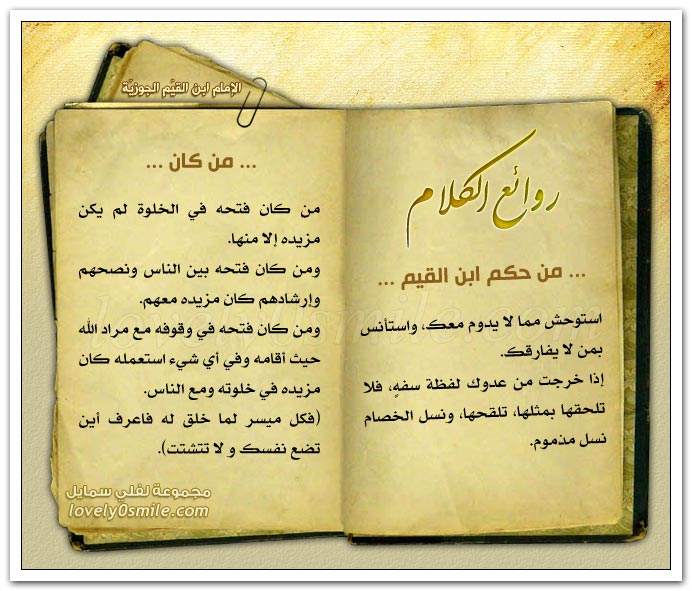 الإمام ابن القيَّم الجوزيَّة
روائع الكلام
... من حكم ابن القيم ...
استوحش مما لا يدوم معك، واستأنس
بمن لا يفارقك.
إذا خرجت من عدوك لفظة سفهٍ، فلا
تلحقها بمثلها، تلقحها، ونسل الخصام
نسل مذموم.
... من كان ...
من كان فتحه في الخلوة لم يكن
مزيده إلا منها.
ومن كان فتحه بين الناس ونصحهم
وإرشادهم كان مزيده معهم.
ومن كان فتحه في وقوفه مع مراد الله
حيث أقامه وفي أي شيء استعمله كان
مزيده في خلوته ومع الناس.
(فكل ميسر لما خلق له فاعرف أين
تضع نفسك و لا تتشتت).
مجموعة لفلي سمايل
lovely0smile.com
lovely0smile.com